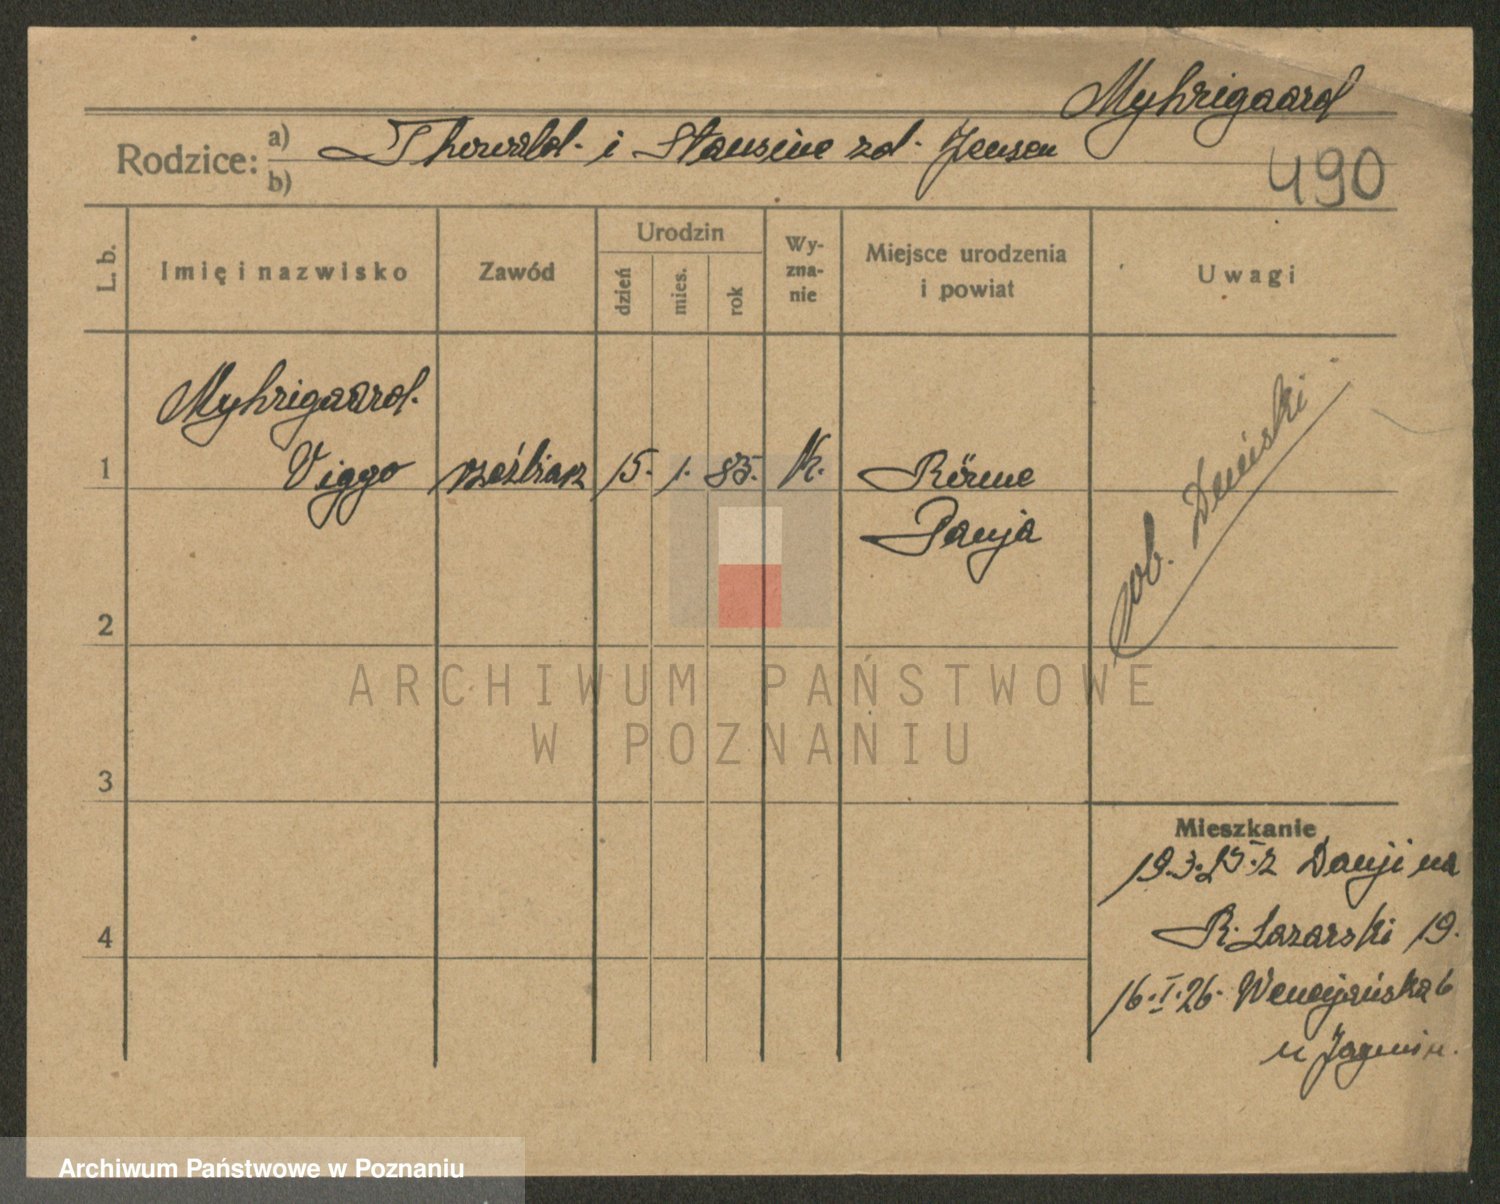 Myhrigaard
Rodzice: a) Thorwald. i Stansine zd. Jensen
b)
490
L. b.
Imię i nazwisko
Zawód
Urodzin
dzień
mies.
rok
Wy-
zna-
nie
Miejsce urodzenia
i powiat
Uwagi
Myhrigaard.
1 Viggo rzeźbiarz 15. 1. 85. K. Rörme
Danja
ob. Duński
2
3
4
Mieszkanie
19.3.25. z Danji na
R. Łazarski 19.
16.I.26. Wenecjańska 6
u Jagmin.
ARCHIWUM PAŃSTWOWE
W POZNANIU
Archiwum Państwowe w Poznaniu